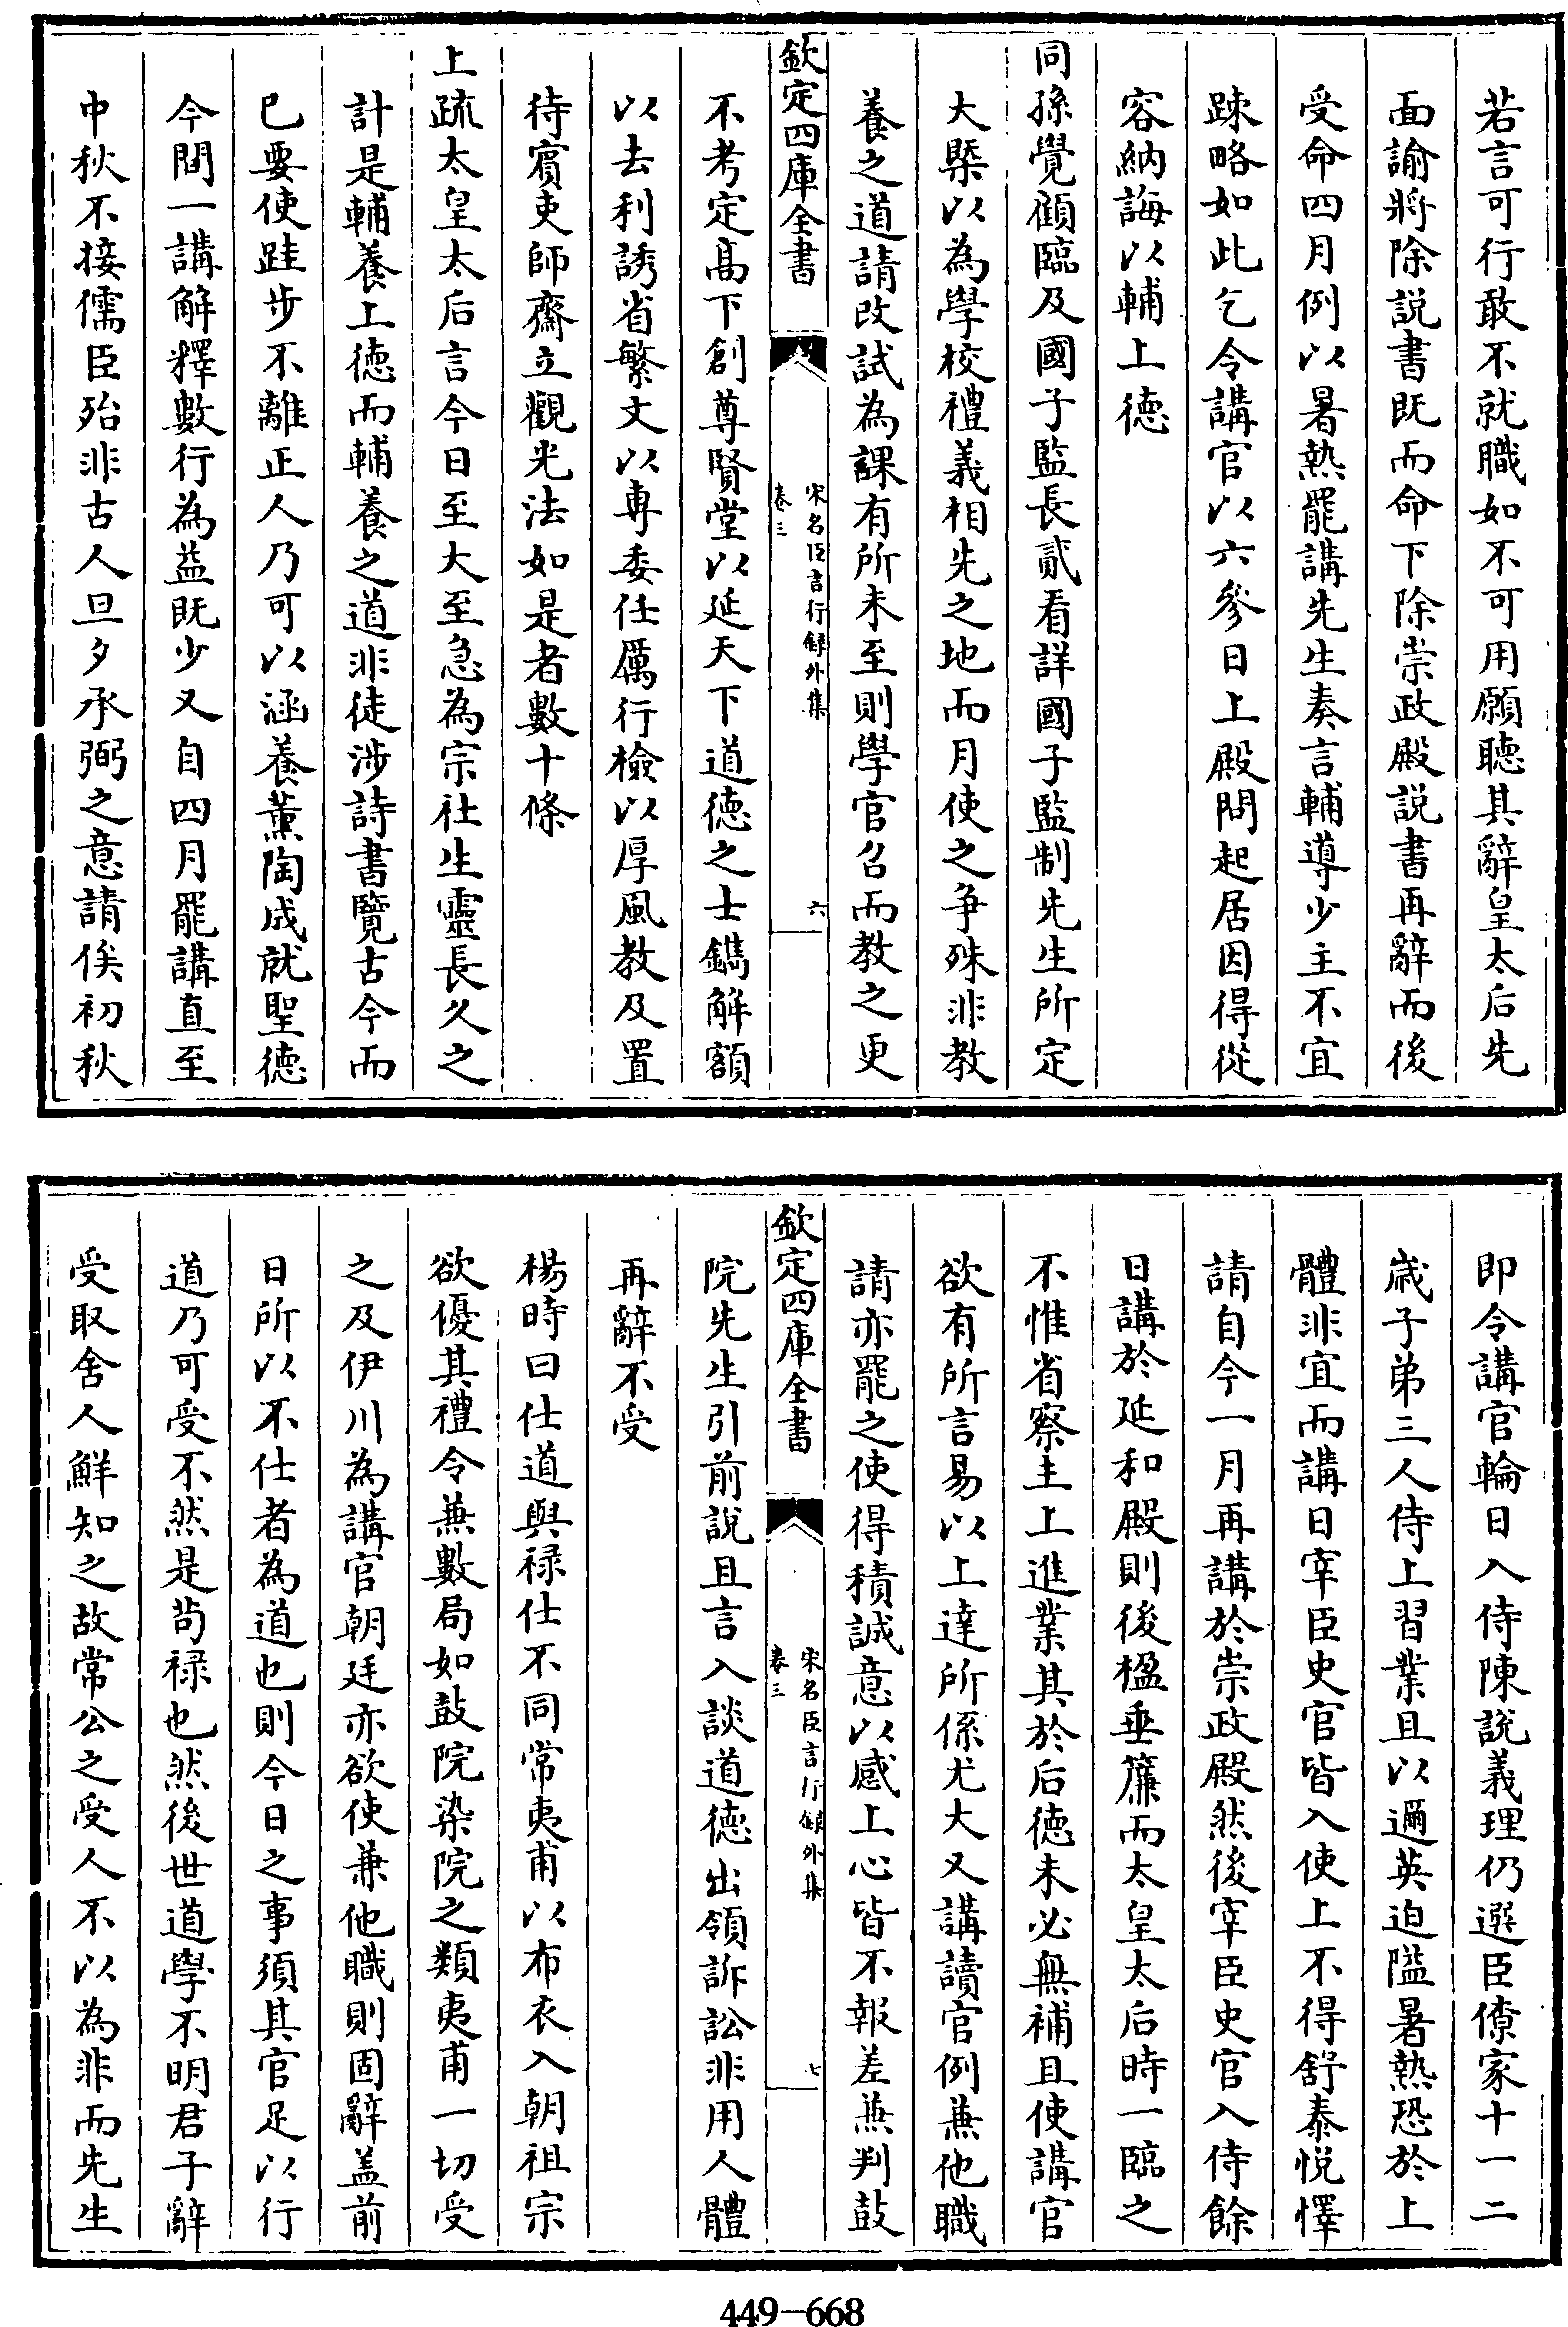 若言可行敢不就職如不可用願聴其辭皇太后先
面諭將除説書既而命下除崇政殿説書再辭而後
受命四月例以暑熱罷講先生奏言輔導少主不宜
踈略如此乞令講官以六參日上殿問起居因得從
容納誨以輔上徳
同孫覺顧臨及國子監長貳看詳國子監制先生所定
大槩以為學校禮義相先之地而月使之争殊非教
養之道請改試為課有所未至則學官召而教之更
欽定四庫全書
宋名臣言行録外集
卷三
六
不考定髙下創尊賢堂以延天下道徳之士鐫解額
以去利誘省繁文以専委任厲行檢以厚風教及置
待賓吏師齋立觀光法如是者數十條
上疏太皇太后言今日至大至急為宗社生靈長久之
計是輔養上徳而輔養之道非徒涉詩書覽古今而
已要使跬步不離正人乃可以涵養薫陶成就聖徳
今間一講解釋數行為益既少又自四月罷講直至
中秋不接儒臣殆非古人旦夕承弼之意請俟初秋
即令講官輪日入侍陳説義理仍選臣僚家十一二
歳子弟三人侍上習業且以邇英迫隘暑熱恐於上
體非宜而講日宰臣史官皆入使上不得舒泰悦懌
請自今一月再講於崇政殿然後宰臣史官入侍餘
日講於延和殿則後楹垂簾而太皇太后時一臨之
不惟省察主上進業其於后徳未必無補且使講官
欲有所言易以上達所係尤大又講讀官例兼他職
請亦罷之使得積誠意以感上心皆不報差兼判鼓
欽定四庫全書
宋名臣言行録外集
卷三
七
院先生引前説且言入談道徳出領訴訟非用人體
再辭不受
楊時曰仕道與禄仕不同常夷甫以布衣入朝祖宗
欲優其禮令兼數局如鼓院染院之類夷甫一切受
之及伊川為講官朝廷亦欲使兼他職則固辭盖前
日所以不仕者為道也則今日之事須其官足以行
道乃可受不然是苟禄也然後世道學不明君子辭
受取舍人鮮知之故常公之受人不以為非而先生
449-668